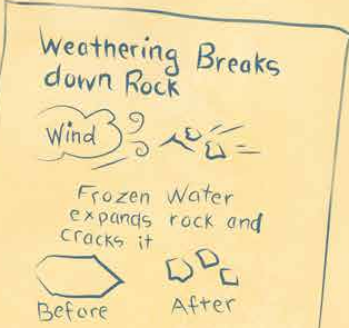 Weathering Breaks
down Rock
Wind
Frozen Water
expands rock and
cracks it
Before
After